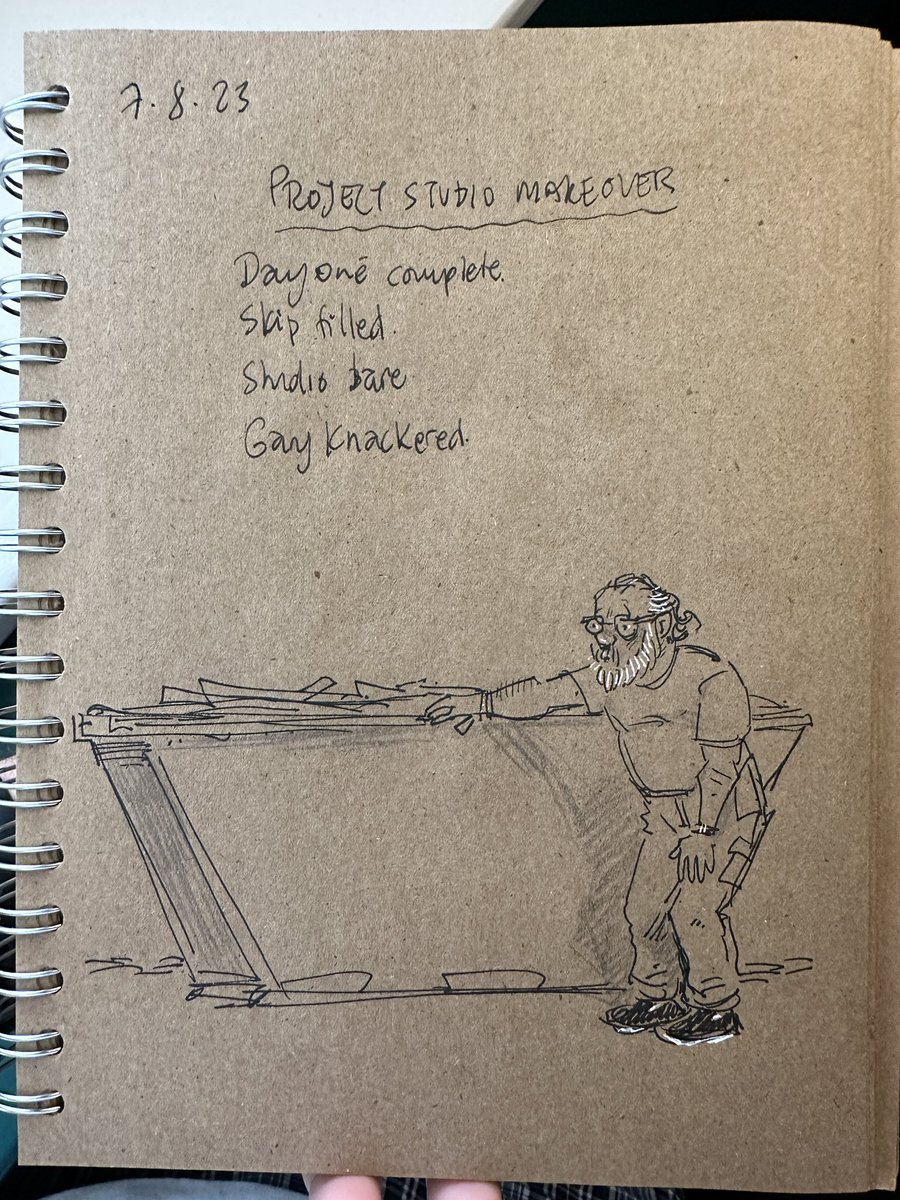 7.8.23
PROJECT STUDIO MAKEOVER
Day one complete.
Skip filled.
Studio bare
Gary Knackered.